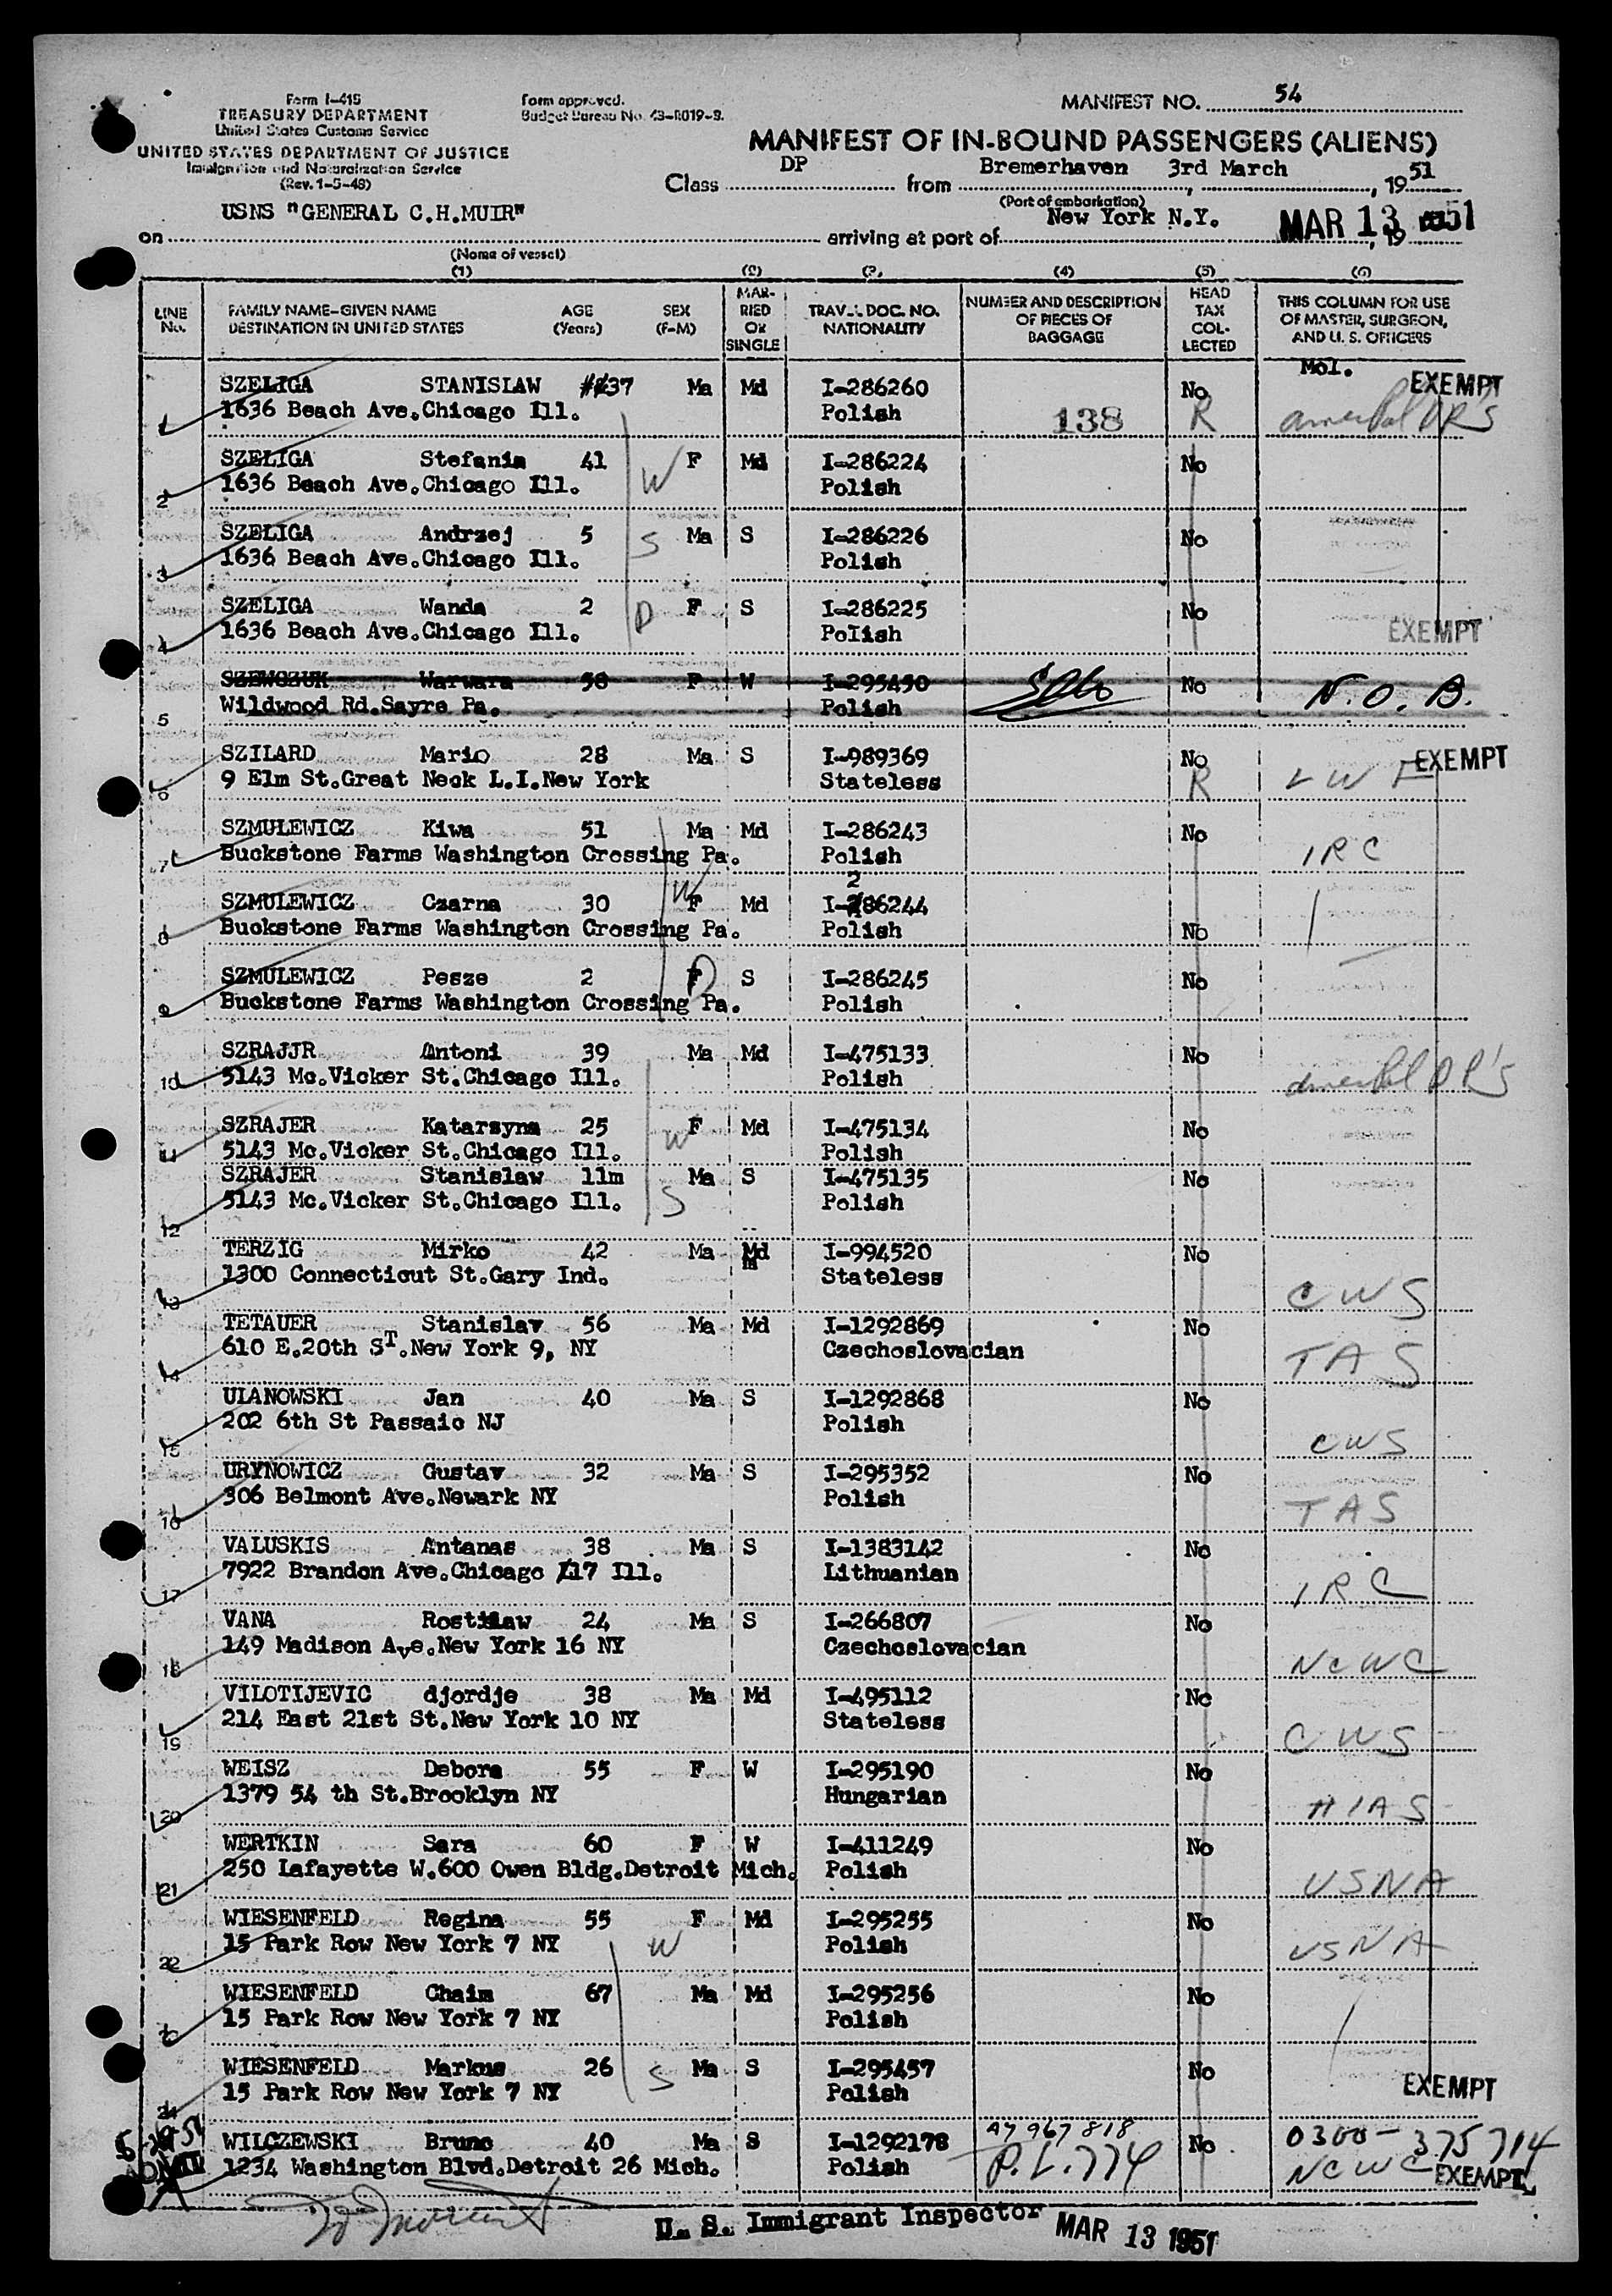 Form I-415
TREASURY DEPARTMENT
United States Customs Service
UNITED STATES DEPARTMENT OF JUSTICE
Immigration and Naturalization Service
(Rev. 1-5-48)
Form approved.
Budget Bureau No. 43-R019-3.
MANIFEST NO. 54
MANIFEST OF IN-BOUND PASSENGERS (ALIENS)
Class DP from Bremerhaven 3rd March, 1951
(Port of embarkation)
on USNS "GENERAL C.H.MUIR" arriving at port of New York N.Y. MAR 13 1951
(Name of vessel)
(1) (2) (3) (4) (5) (6)
LINE No. FAMILY NAME-GIVEN NAME DESTINATION IN UNITED STATES AGE (Years) SEX (F-M) MARRIED OR SINGLE TRAVEL DOC. NO. NATIONALITY NUMBER AND DESCRIPTION OF PIECES OF BAGGAGE HEAD TAX COLLECTED THIS COLUMN FOR USE OF MASTER, SURGEON, AND U. S. OFFICERS
Mol.
1 SZELIGA STANISLAW 37 Ma Md I-286260 No EXEMPT
1636 Beach Ave.Chicago Ill. Polish 138 R DR's
2 SZELIGA Stefania 41 W F Md I-286224 No
1636 Beach Ave.Chicago Ill. Polish
3 SZELIGA Andrzej 5 S Ma S I-286226 No
1636 Beach Ave.Chicago Ill. Polish
4 SZELIGA Wanda 2 D F S I-286225 No
1636 Beach Ave.Chicago Ill. Polish EXEMPT
5 SZEWCZUK Warwara 58 F W I-295450 No N.O.B.
Wildwood Rd.Sayre Pa. Polish
6 SZILARD Mario 28 Ma S I-989369 No EXEMPT
9 Elm St.Great Neck L.I.New York Stateless R LWF
7 SZMULEWICZ Kiwa 51 Ma Md I-286243 No
Buckstone Farms Washington Crossing Pa. Polish IRC
2
8 SZMULEWICZ Czarna 30 W F Md I-286244
Buckstone Farms Washington Crossing Pa. Polish No
9 SZMULEWICZ Pesze 2 F D S I-286245 No
Buckstone Farms Washington Crossing Pa. Polish
10 SZRAJJR Antoni 39 Ma Md I-475133 No
5143 Mc.Vicker St.Chicago Ill. Polish DR's
11 SZRAJER Katarzyna 25 W F Md I-475134 No
5143 Mc.Vicker St.Chicago Ill. Polish
SZRAJER Stanislaw 11m Ma S I-475135 No
12 5143 Mc.Vicker St.Chicago Ill. S Polish
13 TERZIG Mirko 42 Ma Md I-994520 No
1300 Connecticut St.Gary Ind. Stateless CWS
14 TETAUER Stanislav 56 Ma Md I-1292869 No
610 E.20th ST.New York 9, NY Czechoslovacian TAS
15 ULANOWSKI Jan 40 Ma S I-1292868 No
202 6th St Passaic NJ Polish CWS
16 URYNOWICZ Gustav 32 Ma S I-295352 No
306 Belmont Ave.Newark NY Polish TAS
17 VALUSKIS Antanas 38 Ma S I-1383142 No
7922 Brandon Ave.Chicago 17 Ill. Lithuanian IRC
18 VANA Rostislaw 24 Ma S I-266807 No
149 Madison Ave.New York 16 NY Czechoslovacian NCWC
19 VILOTIJEVIC djordje 38 Ma Md I-495112 No
214 East 21st St.New York 10 NY Stateless CWS
20 WEISZ Debora 55 F W I-295190 No
1379 54 th St.Brooklyn NY Hungarian HIAS
21 WERTKIN Sara 60 F W I-411249 No
250 Lafayette W.600 Owen Bldg.Detroit Mich. Polish USNA
22 WIESENFELD Regina 55 F Md I-295255 No
15 Park Row New York 7 NY W Polish USNA
WIESENFELD Chaim 67 Ma Md I-295256 No
15 Park Row New York 7 NY Polish
24 WIESENFELD Markus 26 S Ma S I-295457 No
15 Park Row New York 7 NY Polish EXEMPT
WILCZEWSKI Bruno 40 Ma S I-1292178 A7 967 818 No 0300-375714
1234 Washington Blvd.Detroit 26 Mich. Polish P.L.774 NCWC EXEMPT
U. S. Immigrant Inspector MAR 13 1951